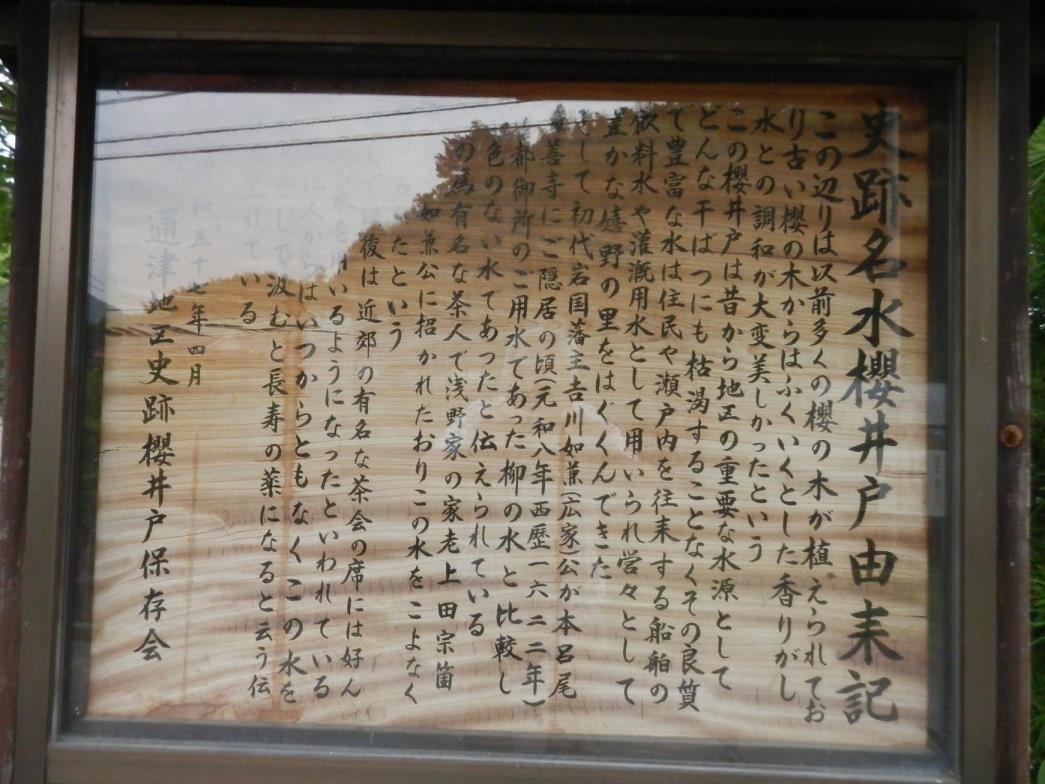 史跡名水櫻井戸由来記
この辺りは以前多くの櫻の木が植えられてお
り古い櫻の木からはふくいくとした香りがし
水との調和が大変美しかったという
この櫻井戸は昔から地区の重要な水源として
どんな干ばつにも枯渇することなくその良質
で豊富な水は住民や瀬戸内を往来する船舶の
飲料水や灌漑用水として用いられ営々として
豊かな嬉野の里をはぐくんできた
して初代岩国藩主吉川如兼(広家)公が本呂尾
善寺にご隠居の頃(元和八年西歴一六二二年)
都御所のご用水であった柳の水と比較し
色のない水であったと伝えられている
の為有名な茶人で浅野家の家老上田宗箇
如兼公に招かれたおりこの水をこよなく
たという
後は近郊の有名な茶会の席には好ん
の水を用いるようになったといわれている
人からはいつからともなくこの水を
して汲むと長寿の薬になると云う伝
れている
和五十七年四月
通津地区史跡櫻井戸保存会